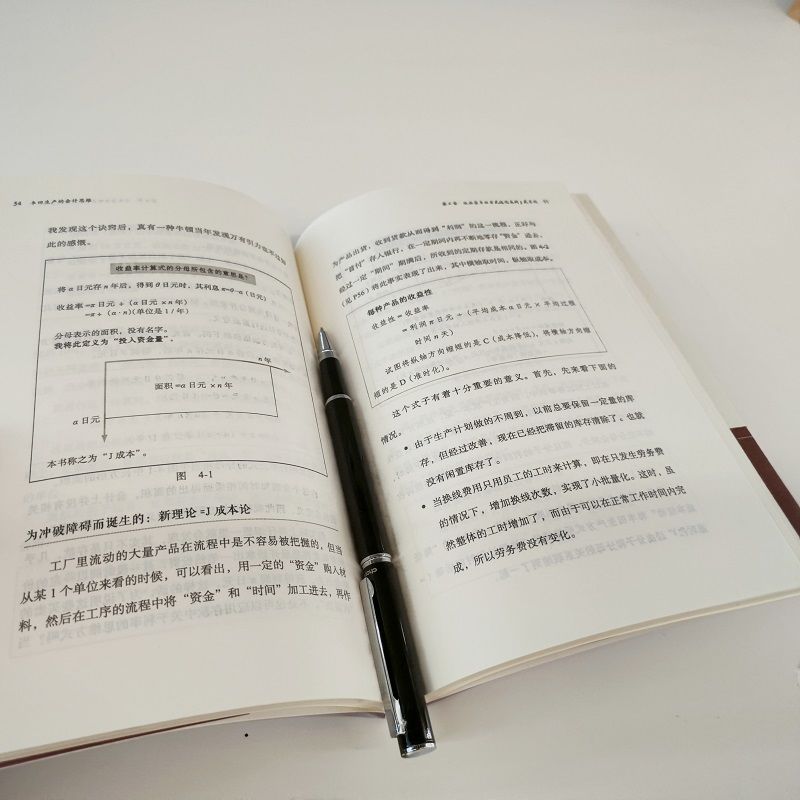 54 丰田生产的会计思维
我发现这个诀窍后，真有一种牛顿当年发现万有引力也不过如
此的感慨。
收益率计算式的分母所包含的意思是？
将 α 日元存 n 年后，得到 θ 日元时，其利息 π=θ-α (日元)
收益率=π 日元 ÷ (α 日元 ×n 年)
=π ÷ (α·n)(单位是 1 / 年)
分母表示的面积，没有名字。
我将此定义为“投入资金量”。
n 年
面积 =α 日元 ×n 年
α 日元
本书称之为“J 成本”。
图 4-1
为冲破障碍而诞生的：新理论 =J 成本论
工厂里流动的大量产品在流程中是不容易被把握的，但当
从某 1 个单位来看的时候，可以看出，用一定的“资金”购入材
料，然后在工序的流程中将“资金”和“时间”加工进去，再作
为产品出货，收到货款从而得到“利润”的这一机器，正好与
把“首付”存入银行，在一定期间内再不断地零存“资金”进去，
经过一定“期间”期满后，所收到的定期存款是相同的。图 4-2
(见 P56) 将此事实表现了出来，其中横轴取时间，纵轴取成本。
每种产品的收益性
收益性 = 收益率
=利润 π 日元 ÷ (平均成本 α 日元 × 平均过程
时间 n 天)
试图将纵轴方向缩短的是 C (成本降低)，将横轴方向缩
短的是 D (准时化)。
这个式子有着十分重要的意义。首先，先来看下面的
情况。
• 由于生产计划做的不周到，以前总要保留一定量的库
存，但经过改善，现在已经把滞留的库存清除了。也就
没有闲置库存了。
• 当换线费用只用员工的工时来计算，即在只发生劳务费
的情况下，增加换线次数，实现了小批量化。这时，虽
然整体的工时增加了，而由于可以在正常工作时间内完
成，所以劳务费没有变化。